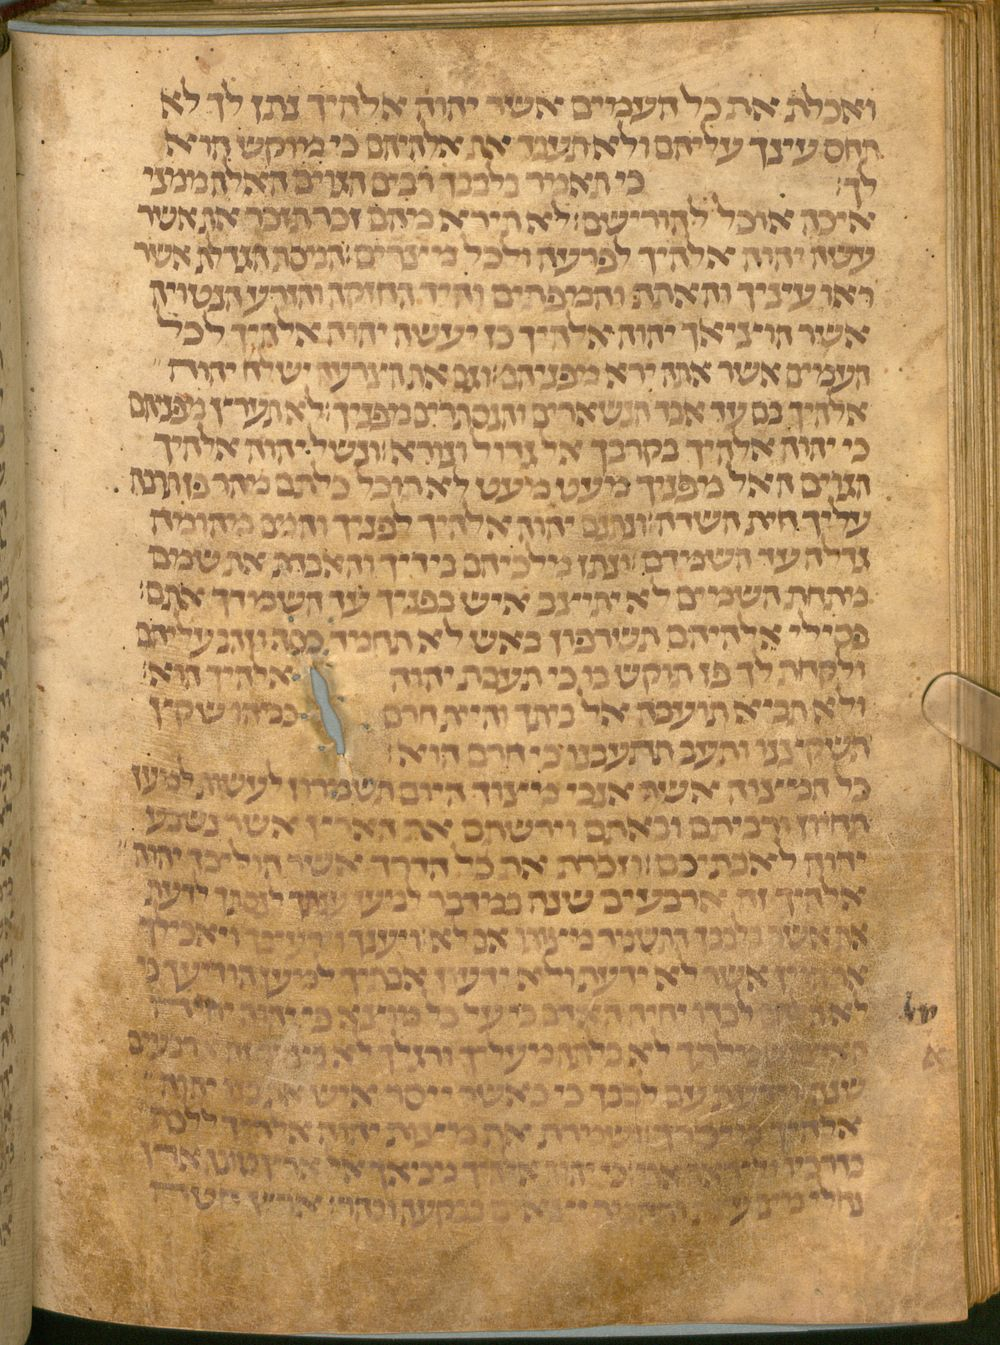 ואכלת את כל העמים אשר יהוה אלהיך נתן לך לא
תחס עינך עליהם ולא תעבד את אלהיהם כי מוקש הוא
לך׃ כי תאמר בלבבך רבים הגוים האלה ממני
איכה אוכל להורישם׃ לא תירא מהם זכר תזכר את אשר
עשה יהוה אלהיך לפרעה ולכל מיצרים׃ המסת הגדלת אשר
ראו עיניך והאתת והמפתים והיד החזקה והזרע הנטויה
אשר הויציאך יהוה אלהיך כן יעשה יהוה אלהיך לכל
העמים אשר אתה ירא מפניהם׃ וגם את היצרעה ישלח יהוה
אלהיך בם עד אבד הנשארים והנסתרים מפניך׃ לא תערוץ מפניהם
כי יהוה אלהיך בקרבך אל גדול ונורא׃ ונשל יהוה אלהיך
הגוים האל מפניך מעט מעט לא תוכל כלתם מהר פן תרבה
עליך חית השדה׃ ונתנם יהוה אלהיך לפניך והמם מהומה
גדלה עד השמידם׃ ונתן מלכיהם בידיך והאבדת את שמם
מתחת השמים לא יתייצב איש בפניך עד השמידך אתם׃
פסילי אלהיהם תשרפון באש לא תחמד כסף וזהב עליהם
ולקחת לך פן תוקש בו כי תעבת יהוה אלהיך הוא׃
ולא תביא תועבה אל ביתך והיית חרם כמהו שקץ
תשקיצנו ותעב תתעבנו כי חרם הוא׃
כל המיצוה אשר אנכי מיצוך היום תשמרון לעשות למען
תחיון ורביתם ובאתם וירשתם את הארץ אשר נשבע
יהוה לאבתיכם׃ וזכרת את כל הדרך אשר הוליכך יהוה
אלהיך זה ארבעים שנה במידבר למען ענתך לנסתך לדעת
את אשר בלבבך התשמר מיצותו אם לא׃ ויענך וירעיבך ויאכילך
את המן אשר לא ידעת ולא ידעון אבתיך למען הודיעך כי
לא על הלחם לבדו יחיה האדם כי על כל מוצא פי יהוה יחיה
האדם׃ שמלתך לא בלתה מעליך ורגלך לא בצקה זה ארבעים
שנה׃ וידעת עם לבבך כי כאשר ייסר איש את בנו יהוה
אלהיך מיסרך׃ ושמרת את מיצות יהוה אלהיך ללכת
בדרכיו וליראה אתו׃ כי יהוה אלהיך מביאך אל ארץ טובה ארץ
נחלי מים בבקעה ובהר׃ ארץ חטה